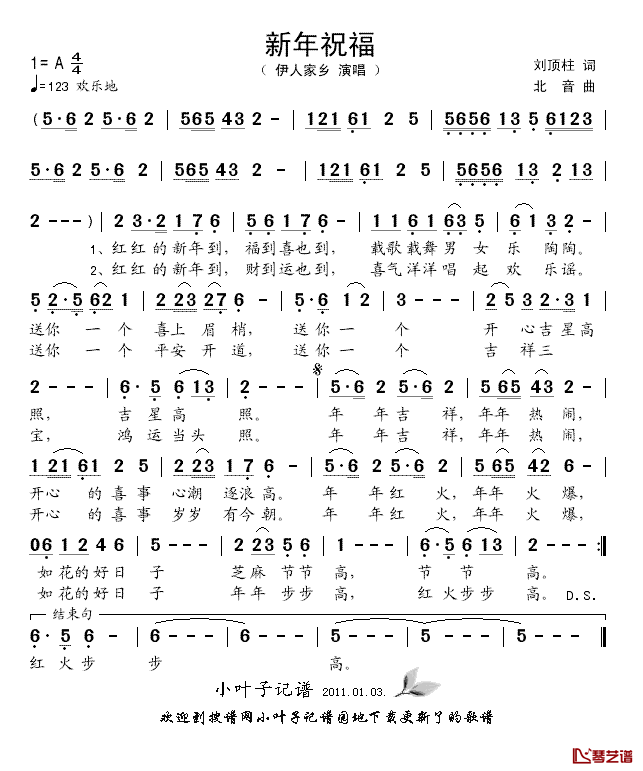 新年祝福
1= A 4/4
（ 伊人家乡 演唱 ）
刘顶柱 词
♩=123 欢乐地
北 音 曲
( 5·6 2 5·6 2 | 565 43 2 - | 121 61 2 5 | 5656 13 5 6123 |
5·6 2 5·6 2 | 565 43 2 - | 121 61 2 5 | 5656 13 2 13 |
2 - - - ) | 2 3·2 1 7 6 | 5·6 1 7 6 - | 1 1 6 1 63 5 | 6 13 2 - |
1、红红的新年到，福到喜也到， 载歌载舞男 女 乐 陶陶。
2、红红的新年到，财到运也到， 喜气洋洋唱 起 欢 乐谣。
5 2·5 62 1 | 2 23 27 6 - | 5·6 12 | 3 - - - | 2 53 2·3 1 |
送你 一 个 喜上 眉 梢， 送 你 一 个 开 心吉星高
送你 一 个 平安 开 道， 送 你 一 个 吉 祥三
2 - - - | 6· 5 6 13 | 2 - - - | 5·6 2 5·6 2 | 5 65 43 2 |
照， 吉 星 高 照。 年 年吉 祥，年年 热 闹，
宝， 鸿 运当头 照。 年 年吉 祥，年年 热 闹，
1 21 61 2 5 | 2 23 1 7 6 - | 5·6 2 5·6 2 | 5 65 42 6 |
开心 的 喜 事 心潮 逐浪 高。 年 年红 火，年年 火 爆，
开心 的 喜 事 岁岁 有今 朝。 年 年红 火，年年 火 爆，
06 12 4 6 | 5 - - - | 2 23 5 6 | 1 - - - | 6· 5 6 13 | 2 - - :||
如花的好日 子 芝麻 节节 高， 节 节 高。
如花的好日 子 年 年 步步 高， 红 火步步 高。 D.S.
结束句
6· 5 6 | 6 - - - | 6 - - - | 5 - - - | 5 - - - | 5 - - - ||
红 火步 步 高。
小叶子记谱 2011.01.03.
欢迎到搜谱网小叶子记谱园地下载更新了的歌谱
琴艺谱